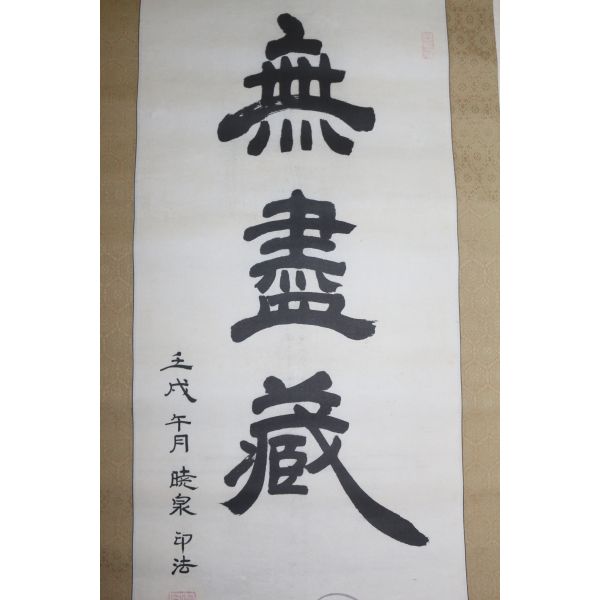 無盡藏
壬戌 午月 曉泉 印法